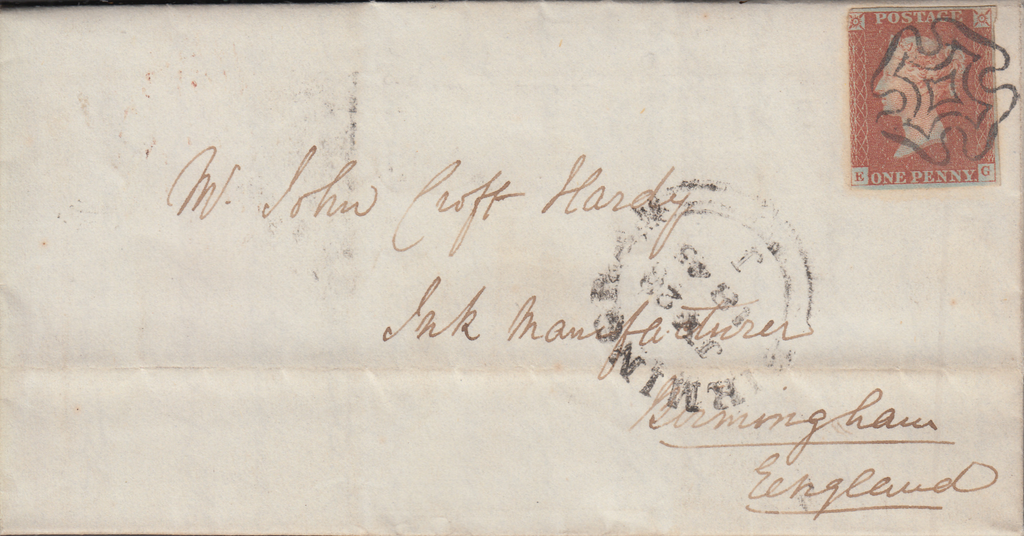 POSTAGE
E ONE PENNY G
Mr. John Croft Hardy
Ink Manufacturer
Birmingham
England